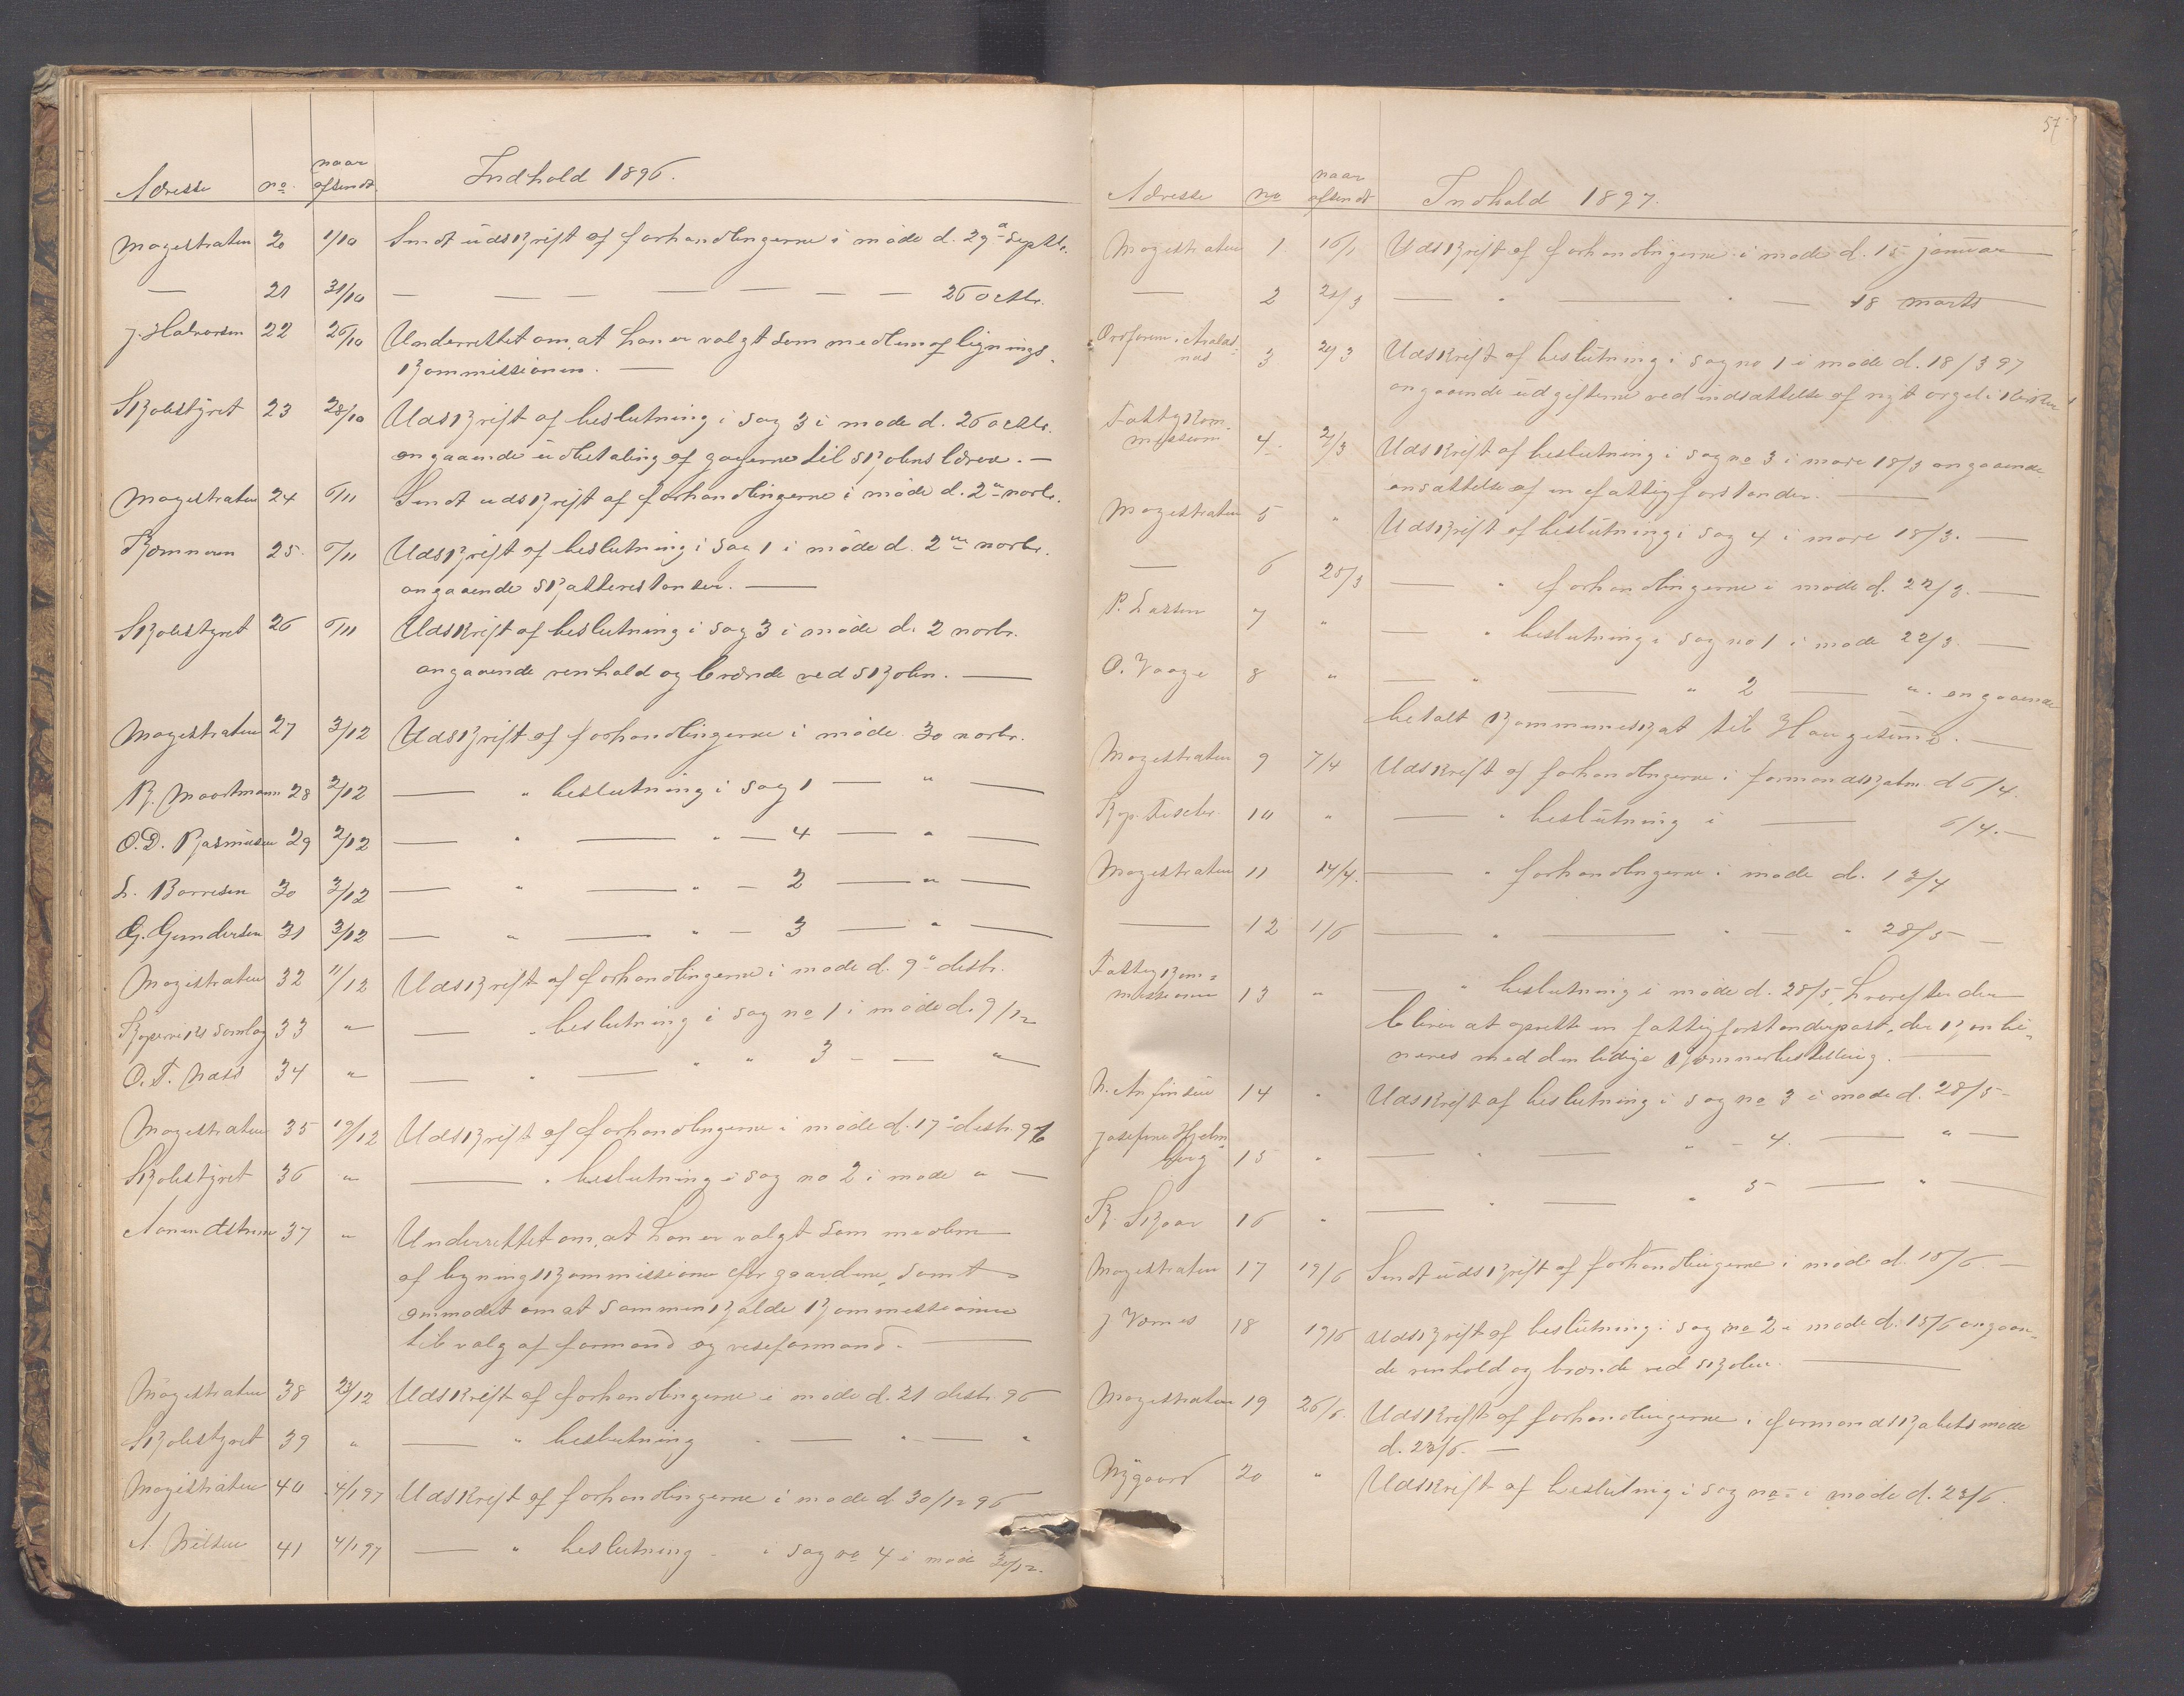 Adresse no. naar afsendt. Indhold 1896.
Magestraten 20 1/10 Sendt udskrift af forhandlingerne i møde d. 29de septbr.
— 21 31/10 — — — — — — — 26 octbr.
J. Halvorsen 22 26/10 Underrettet om, at han er valgt som medlem af lignings-
kommissionen. —
Skolestyret 23 28/10 Udskrift af beslutning i sag 3 i møde d. 26 octbr.
angaaende udbetaling af gagerne til skolens lærere. —
Magestraten 24 6/11 Sendt udskrift af forhandlingerne i møde d. 2den novbr.
Kæmneren 25. 6/11 Udskrift af beslutning i sag 1 i møde d. 2den novbr.
angaaende skatterestanser. —
Skolestyret 26 6/11 Udskrift af beslutning i sag 3 i møde d. 2 novbr.
angaaende renhold og brænde ved skolen. —
Magestraten 27 3/12 Udskrift af forhandlingerne i møde 30 novbr.
R. Maartmann 28 2/12 — " beslutning i sag 1 — " —
O. D. Rasmusen 29 2/12 — " — " — 4 — " —
L. Borresen 30 3/12 — " — " — 2 — " —
G. Gundersen 31 3/12 — " — " — 3 — " —
Magistraten 32 11/12 Udskrift af forhandlingerne i møde d. 9de desbr.
Kopervik samlag 33 " — " beslutning i sag no 1 i møde d. 9/12
O. T. Næss 34 " — " — " " 3 — — "
Magestraten 35 19/12 Udskrift af forhandlingerne i møde d. 17de desbr. 96
Skolestyret 36 " — " beslutning i sag no 2 i møde " —
37 " Underrettet om, at han er valgt som medlem
af ligningskommissionen for gaardene, samt
anmodet om at sammenkalde kommissionen
til valg af formand og viseformand. —
Magestraten 38 23/12 Udskrift af forhandlingerne i møde d. 21 desbr. 96
Skolestyret 39 " — " beslutning " — " — "
Magistraten 40 4/1 97 Udskrift af forhandlingerne i møde d 30/12 96
A. Nilsen 41 4/1 97 — " beslutning - i sag no 4 i møde 30/12.
57
Adresse no naar afsendt Indhold 1897.
Magestraten 1 16/1 Udskrift af forhandlingerne i møde d. 15 januar —
— 2 21/3 — " — " — 18 marts —
Ordføreren i Avalds-
næs 3 21/3 Udskrift af beslutning i sag no 1 i møde d. 18/3 97
angaaende udgifterne ved indsættelse af nyt orgel i kirken
Fattigkom-
missionen 4. 21/3 Udskrift af beslutning i sag no 3 i møde 18/3 angaaende
ansættelse af en fattigforstander. —
Magestraten 5 " Udskrift af beslutning i sag 4 i møde 18/3. —
— 6 25/3 — " forhandlingerne i møde d. 22/3. —
P. Lassen 7 " — " beslutning i sag no 1 i møde 22/3. —
O. Vaage 8 " — " — " 2 — ". angaaende
betalt kommuneskat til Haugesund. —
Magestraten 9 7/4 Udskrift af forhandlingerne i formandskabm. d 6/4.
Kap. Fischer 10 " — " beslutning i — 6/4. —
Magestraten 11 14/4. — " forhandlingerne i møde d. 13/4
— 12 1/6 — " — " — " 28/5 —
Fattigkom-
missionen 13 " — " beslutning i møde d. 28/5, hvorefter der
blever at oprette en fattigforstanderpost, der kombi-
neres med den ledige kæmnerbestilling. —
N. Anfinsen 14 " Udskrift af beslutning i sag no 3 i møde d. 28/5 -
Josefine Hjelm-
berg 15 " — " — " - 4. — " —
K. Skaar 16 " — " — " 5 — " —
Magestraten 17 19/6 Sendt udskrift af forhandlingerne i møde d. 15/6. —
J Vornes 18 19/6 Udskrift af beslutning i sag no 2 i møde d. 15/6 angaaen-
de renhold og brænde ved skolen. —
Magestraten 19 26/6. Udskrift af forhandlingerne i formandskabets møde
d. 23/6. —
Nygaard 20 " Udskrift af beslutning i sag no 1 i møde d. 23/6.